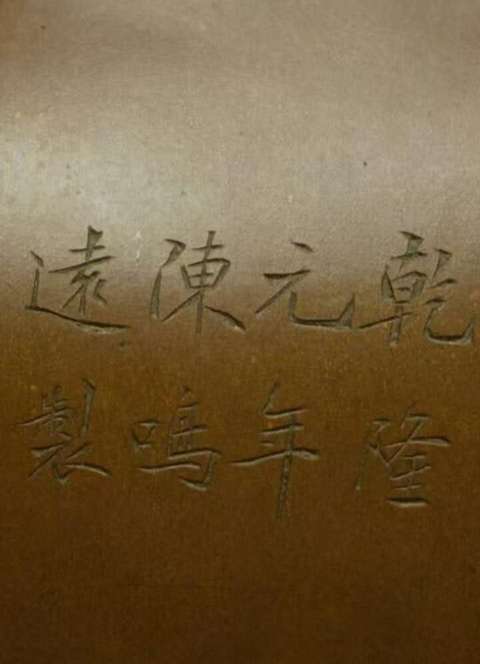 乾隆
元年
陳鳴
遠製